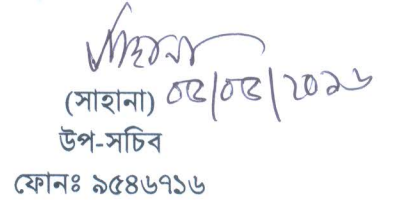 সাহানা
(সাহানা) ০৫/০৫/২০১৬
উপ-সচিব
ফোনঃ ৯৫৪৬৭১৬